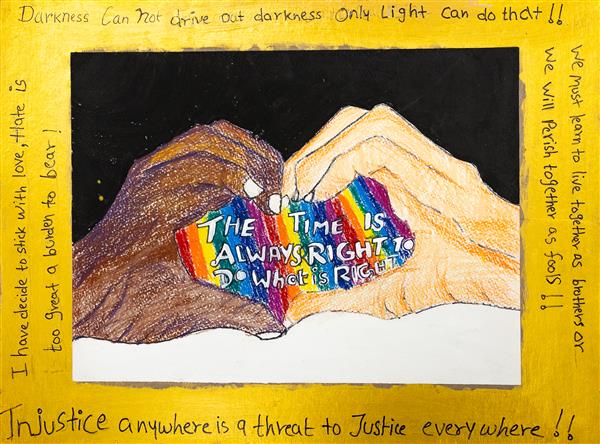 Darkness Can Not drive out darkness Only Light can do that!!
I have decide to stick with love, Hate is
too great a burden to bear!
THE TIME IS
ALWAYS RIGHT TO
Do What is RIGHT
We must learn to live together as brothers or
We will Perish together as fools!!
Injustice anywhere is a threat to Justice everywhere!!